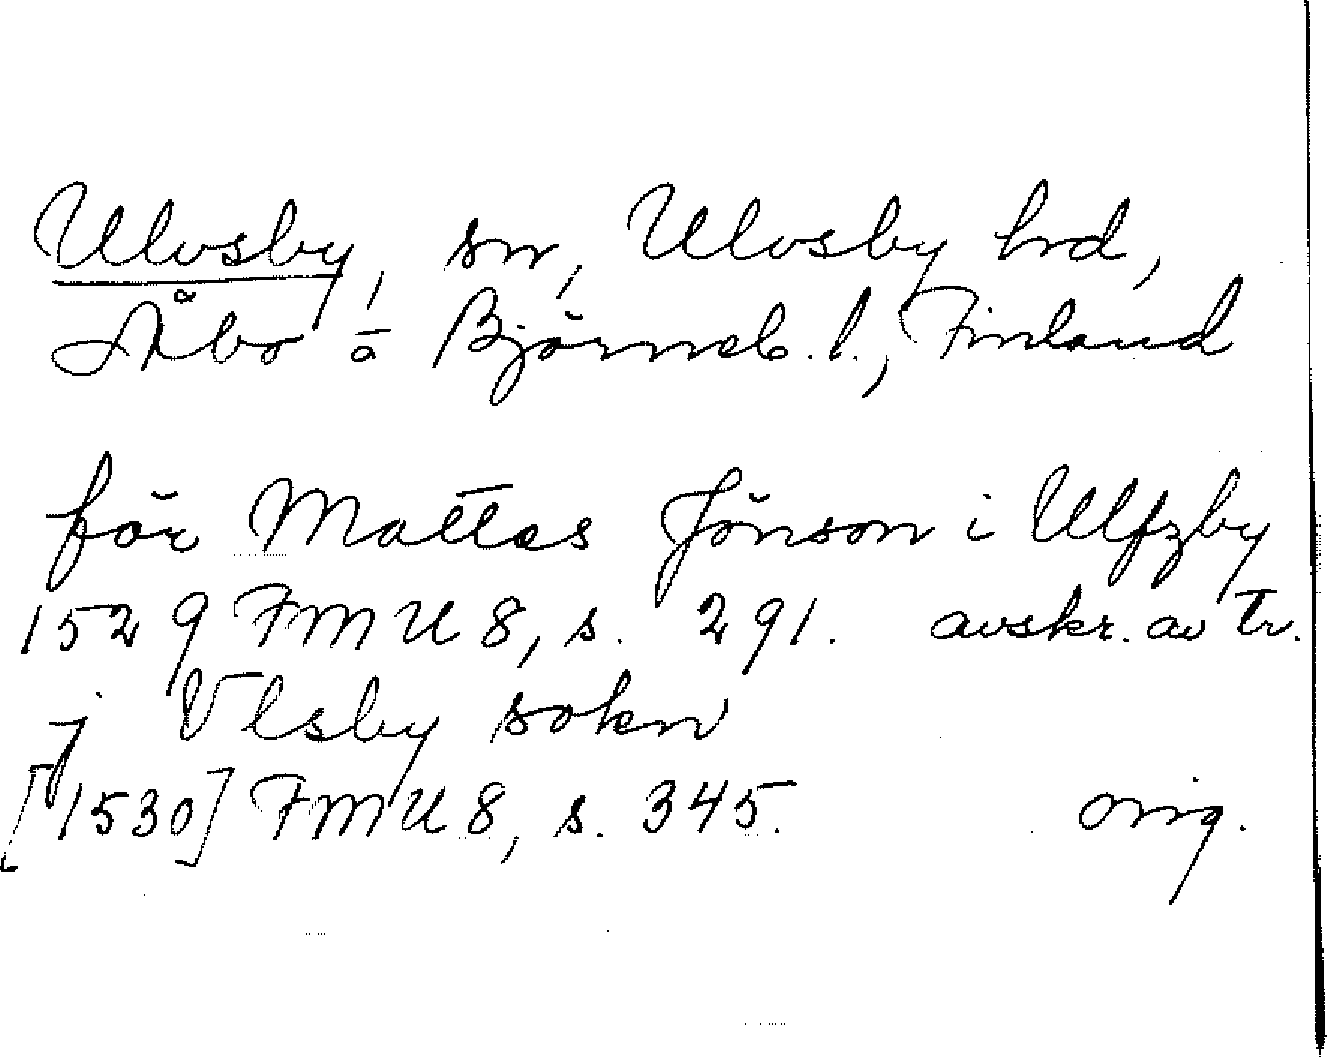 Ulvsby, sn, Ulvsby hrd,
Åbo o Björneb. l., Finland
för Mattes Jönson i Ulfzby
1529 FMU 8, s. 291. avskr. av tr.
j Vlsby sokn
[1530] FMU 8, s. 345. orig.